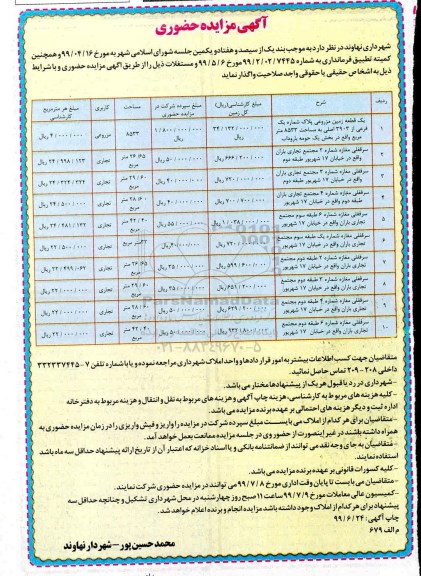 آگهی مزایده حضوری
شهرداری نهاوند در نظر دارد به موجب بند یک از سیصد و هفتاد و یکمین جلسه شورای اسلامی شهر به مورخ ۹۹/۰۴/۱۶ و همچنین
کمیته تطبیق فرمانداری به شماره ۹۹/۲/۰۲/۷۴۴۵ مورخ ۹۹/۵/۶ مستغلات ذیل را از طریق آگهی مزایده حضوری و با شرایط
ذیل به اشخاص حقیقی یا حقوقی واجد صلاحیت واگذار نماید
ردیف شرح مبلغ کارشناسی(ریال) کل زمین مبلغ سپرده شرکت در مزایده حضوری مساحت کاربری مبلغ هر مترمربع کارشناسی
۱ یک قطعه زمین مزروعی پلاک شماره یک فرعی از ۳۹۰۳ اصلی به مساحت ۸۵۳۳ متر مربع واقع در بخش یک حومه باروداب ۳۴/۱۳۲/۰۰۰/۰۰۰ ریال ۱/۸۰۰/۰۰۰/۰۰۰ ریال ۸۵۳۳ مزروعی ۴/۰۰۰/۰۰۰ ریال
۲ سرقفلی مغازه شماره ۲ مجتمع تجاری باران واقع در خیابان ۱۷ شهریور طبقه دوم ۶۶۶/۲۰۰/۰۰۰ ریال ۵۰/۰۰۰/۰۰۰ ریال ۲۶/۶۵ متر مربع تجاری ۲۴/۹۹۸/۱۲۳ ریال
۳ سرقفلی مغازه شماره ۳ مجتمع تجاری باران واقع در خیابان ۱۷ شهریور طبقه دوم ۷۲۰/۰۰۰/۰۰۰ ریال ۴۰/۰۰۰/۰۰۰ ریال ۲۹/۶۰ متر مربع تجاری ۲۴/۳۲۴/۳۲۴ ریال
۴ سرقفلی مغازه شماره ۴ مجتمع تجاری باران طبقه دوم واقع در خیابان ۱۷ شهریور ۷۰۰/۷۰۰/۰۰۰ ریال ۴۰/۰۰۰/۰۰۰ ریال ۲۸/۶۰ متر مربع تجاری ۲۴/۵۰۰/۰۰۰ ریال
۵ سرقفلی مغازه شماره ۶ طبقه سوم مجتمع تجاری باران واقع در خیابان ۱۷ شهریور ۱/۰۳۸/۰۰۰/۰۰۰ ریال ۵۵/۰۰۰/۰۰۰ ریال ۴۲/۴۰ متر مربع تجاری ۲۴/۴۸۱/۱۳۲ ریال
۶ سرقفلی مغازه شماره یک طبقه سوم مجتمع تجاری باران واقع در خیابان ۱۷ شهریور ۷۲۰/۰۰۰/۰۰۰ ریال ۴۰/۰۰۰/۰۰۰ ریال ۳۲ متر مربع تجاری ۲۲/۵۰۰/۰۰۰ ریال
۷ سرقفلی مغازه شماره ۲ طبقه سوم مجتمع تجاری باران واقع در خیابان ۱۷ شهریور ۵۹۹/۶۰۰/۰۰۰ ریال ۳۵/۰۰۰/۰۰۰ ریال ۲۶/۶۵ متر مربع تجاری ۲۲/۴۹۹/۰۶۲ ریال
۸ سرقفلی مغازه شماره ۳ طبقه دوم مجتمع تجاری باران واقع در خیابان ۱۷ شهریور ۶۵۱/۲۰۰/۰۰۰ ریال ۳۵/۰۰۰/۰۰۰ ریال ۲۹/۶۰ متر مربع تجاری ۲۲/۰۰۰/۰۰۰ ریال
۹ سرقفلی مغازه شماره ۴ طبقه دوم مجتمع تجاری باران واقع در خیابان ۱۷ شهریور ۶۲۹/۲۰۰/۰۰۰ ریال ۵۰/۰۰۰/۰۰۰ ریال ۲۸/۶۰ متر مربع تجاری ۲۲/۰۰۰/۰۰۰ ریال
۱۰ سرقفلی مغازه شماره ۶ طبقه دوم مجتمع تجاری باران واقع در خیابان ۱۷ شهریور ۹۳۲/۸۰۰/۰۰۰ ریال ۵۰/۰۰۰/۰۰۰ ریال ۴۲/۴۰ متر مربع تجاری ۲۲/۰۰۰/۰۰۰ ریال
متقاضیان جهت کسب اطلاعات بیشتر به امور قراردادها و واحد املاک شهرداری مراجعه نموده و یا با شماره تلفن ۷-۳۳۲۳۷۴۴۵
داخلی ۲۰۸-۲۰۹ تماس حاصل نمائید.
-شهرداری در رد یا قبول هر یک از پیشنهادها مختار می باشد.
-کلیه هزینه های مربوط به کارشناسی، هزینه چاپ آگهی و هزینه های مربوط به نقل و انتقال و هزینه مربوط به دفترخانه
اداره ثبت و دیگر هزینه های احتمالی بر عهده برنده مزایده می باشد.
-متقاضیان برای هر کدام از املاک می بایست مبلغ سپرده شرکت در مزایده را واریز و فیش واریزی را در زمان مزایده حضوری به
همراه داشته باشند در غیر اینصورت از حضور وی در جلسه مزایده ممانعت بعمل خواهد آمد.
-متقاضیان به جای وجه نقد می توانند از ضمانتنامه بانکی و یا اسناد خزانه که اعتبار آن از تاریخ ارائه پیشنهاد حداقل سه ماه باشد
استفاده نمایند.
-کلیه کسورات قانونی بر عهده برنده مزایده می باشد.
-متقاضیان می بایست تا پایان وقت اداری مورخ ۹۹/۷/۸ می توانند در مزایده حضوری شرکت نمایند.
-کمیسیون عالی معاملات مورخ ۹۹/۷/۹ ساعت ۱۱ صبح روز چهارشنبه در محل شهرداری تشکیل و چنانچه حداقل سه
پیشنهاد برای هر کدام از املاک وجود داشته باشد مزایده انجام و برنده اعلام خواهد شد.
چاپ آگهی: ۹۹/۶/۲۴
م الف ۶۷۹
محمد حسین پور-شهردار نهاوند